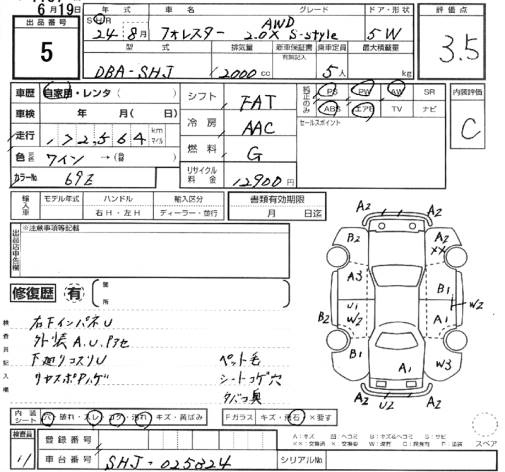 6月19日
出品番号
5
年式 車名 グレード ドア・形状
24 8月 フォレスター AWD 2.0X S-style 5W
型式 排気量 新車保証書 有無記入 乗車定員 最大積載量
DBA-SHJ 2000 cc 5人 kg
評価点
3.5
内装評価
C
車歴 自家用・レンタ( )
車検 年 月( 日)
走行 172,564 km マイル
色 元色 ワイン →(替 )
カラーNo. 69Z
シフト FAT
冷房 AAC
燃料 G
リサイクル料金 12900円
純正のみ PS PW AW SR
ABS エアB TV ナビ
セールスポイント
輸入車 モデル年式 ハンドル 右H・左H 輸入区分 ディーラー・並行
書類有効期限 月 日迄
出品店申告欄
※注意事項等記載
修復歴 有 箇所
検査員記入欄
右下インパネU
外装A.U.P3セ
下廻リコスリU
リヤスポアハゲ
ペット毛
シートコゲ穴
タバコ臭
A2 A2
B2 A2 XX
A3 B1
U1 W2 W2
B2 A1
B1 A1 W3
A2 U2 A2
内装シート 破れ・スレ 汚れ キズ・黄ばみ
Fガラス キズ・飛石 ×要す
スペア
検査員
登録番号
車台番号 SHJ-025824 シリアルNo.